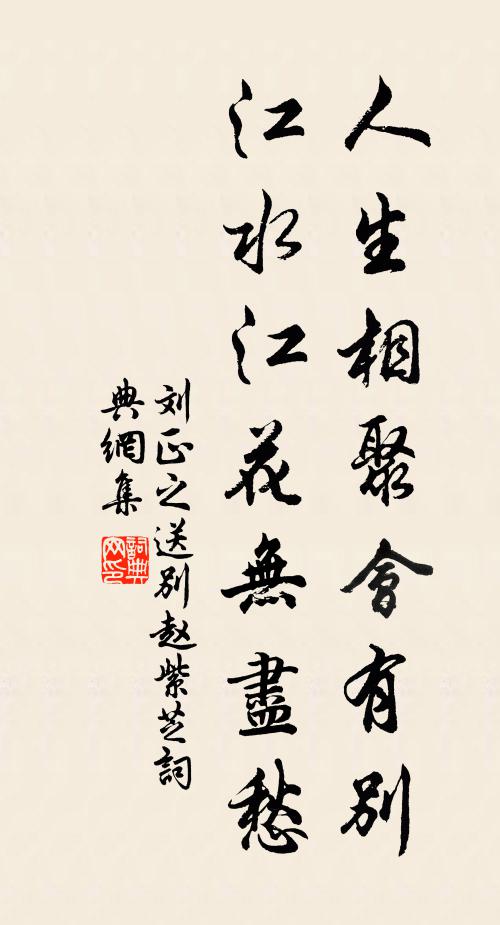 人生相聚會有别
江水江花無盡愁
刘正之送别赵紫芝詞
典網集
詞典网印